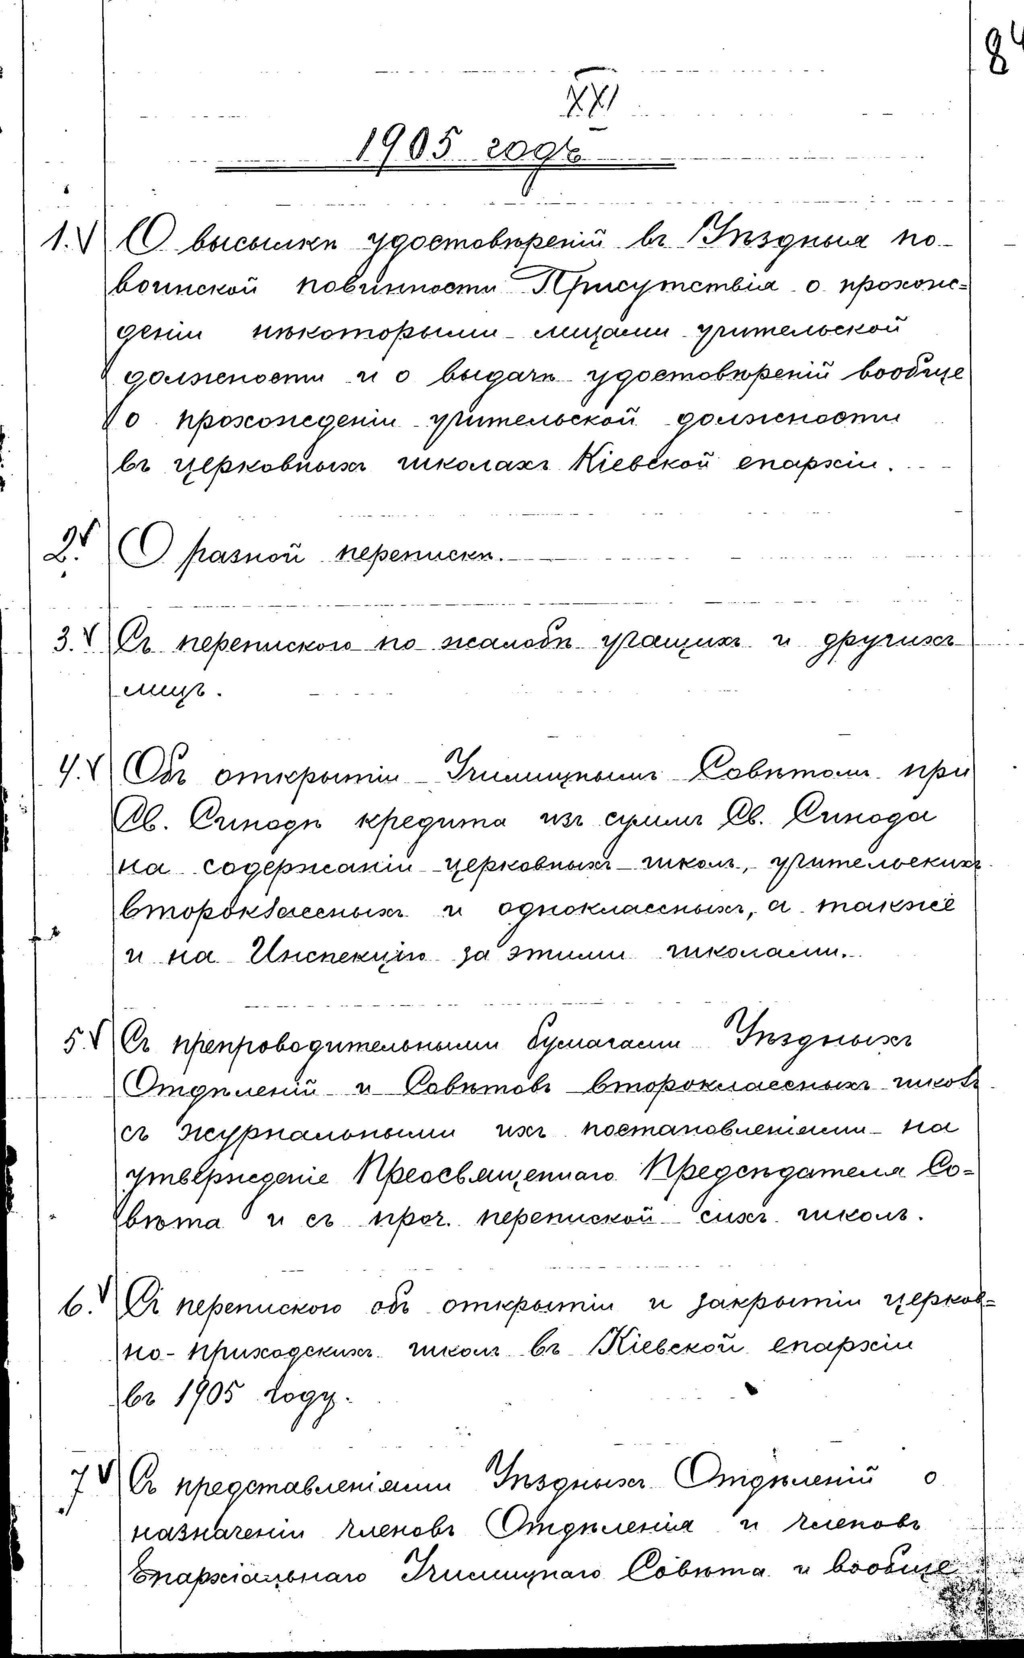 84
XXI
1905 годъ
1. V О высылкѣ удостовѣреній въ Уѣздныя по
воинской повинности Присутствія о прохож=
деніи нѣкоторыми лицами учительской
должности и о выдачѣ удостовѣреній вообще
о прохожденіи учительской должности
въ церковныхъ школахъ Кіевской епархіи.
2. V О разной перепискѣ.
3. V Съ перепискою по жалобѣ учащихъ и другихъ
лицъ.
4. V Объ открытіи Училищнымъ Совѣтомъ при
Св. Синодѣ кредита изъ суммъ Св. Синода
на содержаніи церковныхъ школъ, учительскихъ
второклассныхъ и одноклассныхъ, а также
и на Инспекцію за этими школами.
5. V Съ препроводительными бумагами Уѣздныхъ
Отдѣленій и Совѣтовъ второклассныхъ школъ
съ журнальными ихъ постановленіями на
утвержденіе Преосвященнаго Предсѣдателя Со=
вѣта и съ проч. перепиской сихъ школъ.
6. V Съ перепискою объ открытіи и закрытіи церков=
но-приходскихъ школъ въ Кіевской епархіи
въ 1905 году.
7 V Съ представленіями Уѣздныхъ Отдѣленій о
назначеніи членовъ Отдѣленія и членовъ
Епархіальнаго Училищнаго Совѣта и вообще